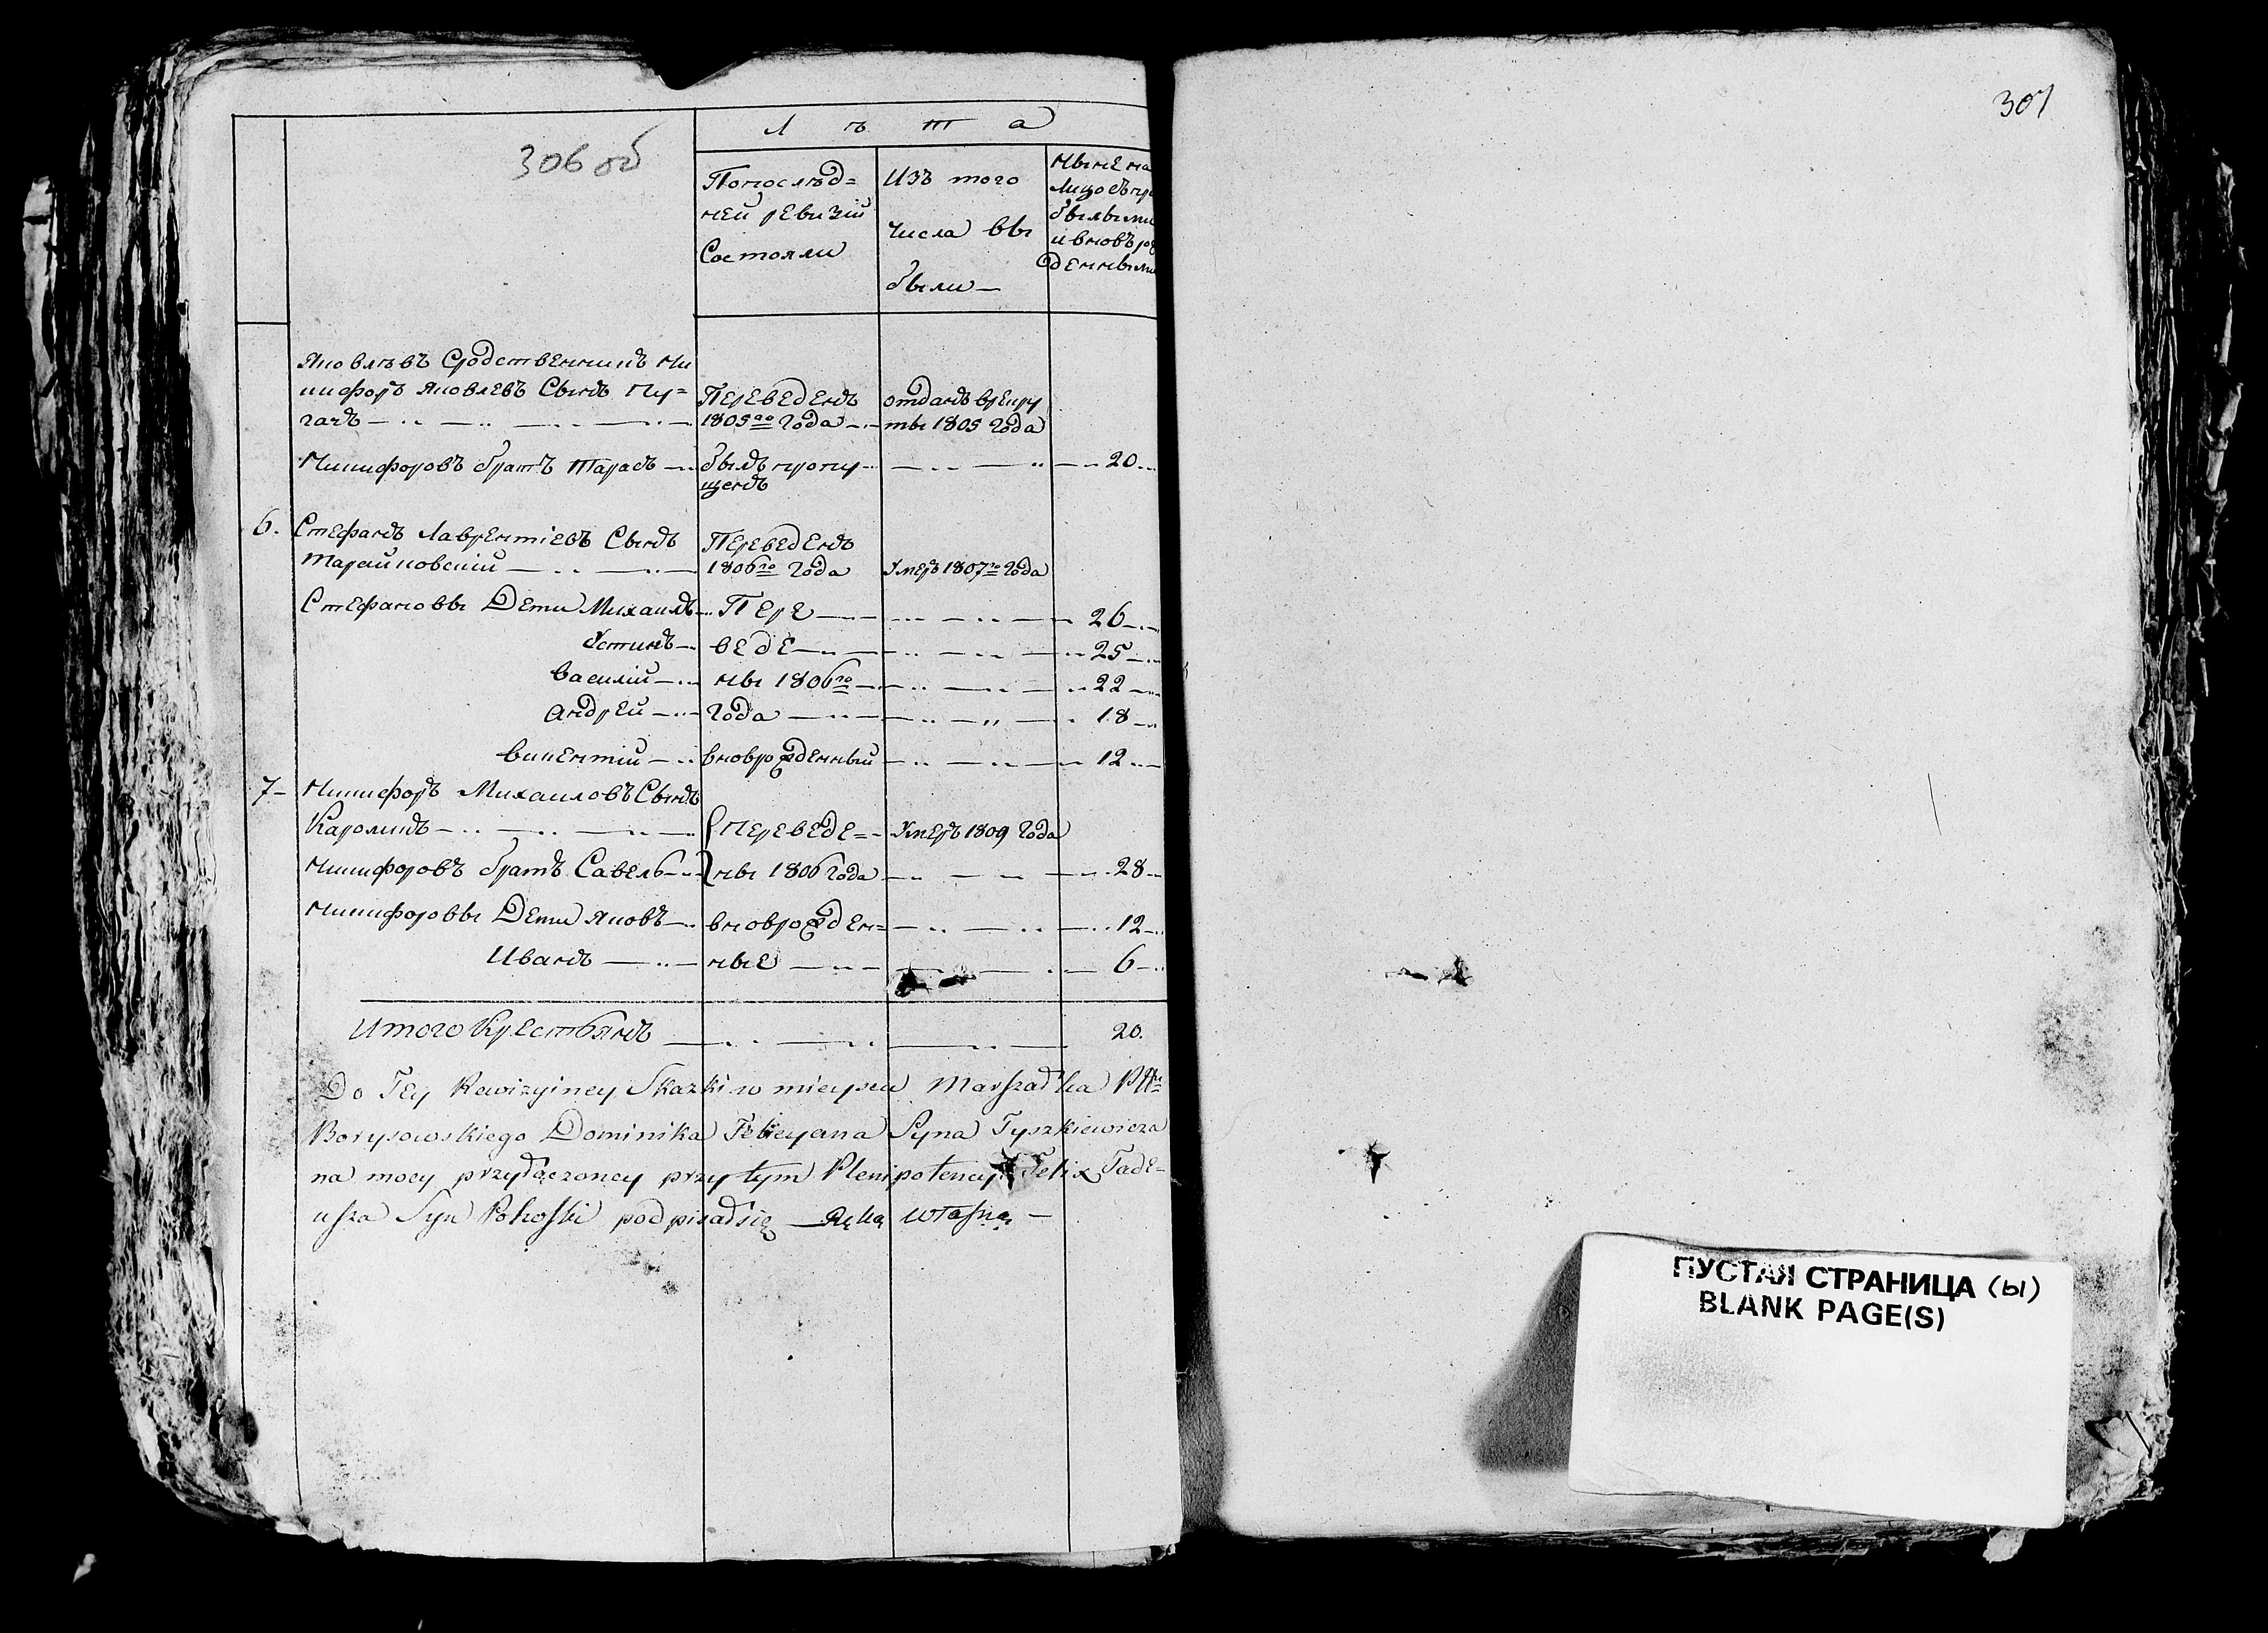 306 об
307
Лѣта
Попослѣд=
ней ревизіи
Состояли
Изъ того
числа вы
были —
Ныне на
Лицо съпри
былыми
и вновь рож
денными
Яковлѣвъ Сродственникъ Ни
кифоръ Яковлевъ Сынъ Пу=
гачъ — Переведенъ 1805го года — отданъ врекру
ты 1805 года
Никифоровъ братъ Тарасъ — былъ пропу
щенъ — 20
6. Стефанъ Лаврентіевъ Сынъ
Тарайковскій — Переведенъ 1806го года Умеръ 1807го года
Стефановы Дети Михаилъ — Пере — 26
Устинъ — веде — 25
Василій — ны 1806го — 22
Андрей — года — 18
Викентій — вновро жденный — 12
7 — Никифоръ Михаиловъ Сынъ
Кароликъ — Переведе= Умеръ 1809 года
Никифоровъ братъ Савель — ны 1806 года — 28
Никифоровы Дети Яковъ — вноврожден= — 12
Иванъ — ные — 6
Итого Крестьянъ — 20.
Do Tey Rewizyiney Skazki w mieyscu Marszałka Pttu
Borysowskiego Dominika Felicyana Syna Tyszkiewicza
na mocy przyłączoney przytym Plenipotencyi Felix Tade=
usza Syn Pokoski podpisał się — Ręką własną —
ПУСТАЯ СТРАНИЦА (ы)
BLANK PAGE(S)